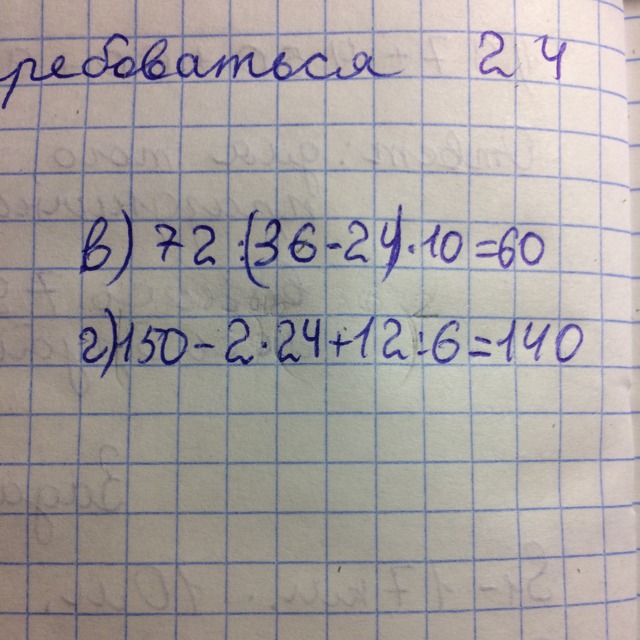 ребоваться 24
в) 72:(36-24)·10=60
г) 150-2·24+12:6=140